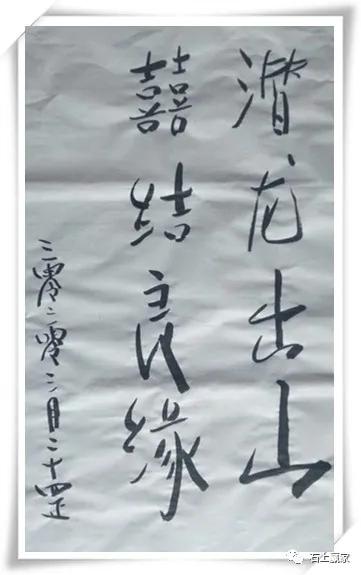 潜龙出山
囍结良缘
二零二零三月二十四正
石土赢家